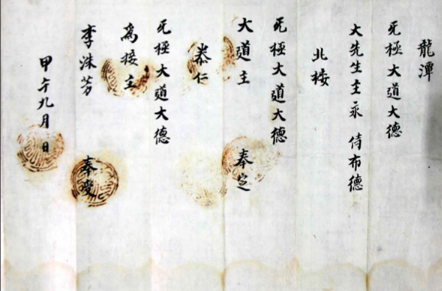 龍潭
无極大道大德
大先生主永侍布德
北接
无極大道大德
大道主 奉
泰仁
无極大道大德
為接主
李洙芳 奉
甲午九月 日